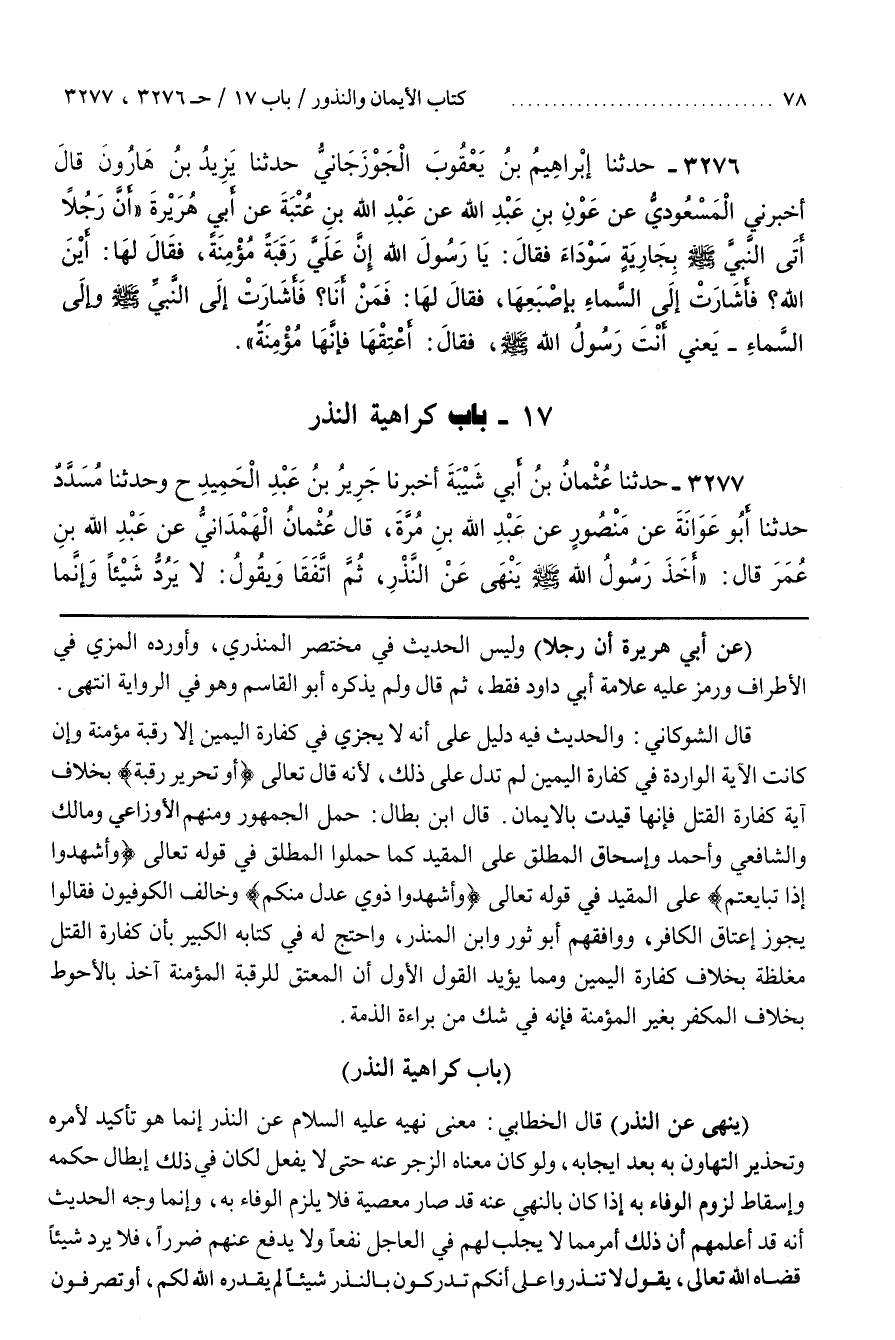 ٧٨ ................................ كتاب الأيمان والنذور / باب ١٧ / حـ ٣٢٧٦ ، ٣٢٧٧
٣٢٧٦ ـ حدثنا إبْراهِيمُ بنُ يَعْقُوبَ الْجَوْزَجَانيُّ حدثنا يَزِيدُ بنُ هَارُونَ قالَ
أخبرني الْمَسْعُوديُّ عن عَوْنِ بنِ عَبْدِ الله عن عَبْدِ الله بنِ عُتْبَةَ عن أَبي هُرَيْرَةَ «أَنَّ رَجُلاً
أَتَى النَّبيَّ ﷺ بِجَارِيَةٍ سَوْدَاءَ فقالَ: يَا رَسُولَ الله إنَّ عَلَيَّ رَقَبَةً مُؤْمِنَةً، فقَالَ لهَا: أَيْنَ
الله؟ فأَشَارَتْ إلَى السَّماءِ بإصْبَعِهَا، فقالَ لهَا: فَمَنْ أَنَا؟ فَأَشَارَتْ إلَى النَّبيِّ ﷺ وإلَى
السَّماءِ ـ يَعني أَنْتَ رَسُولُ الله ﷺ، فقالَ: أَعْتِقْهَا فإنَّهَا مُؤْمِنَةٌ».
١٧ ـ باب كراهية النذر
٣٢٧٧ ـ حدثنا عُثْمانُ بنُ أَبي شَيْبَةَ أخبرنا جَرِيرُ بنُ عَبْدِ الْحَمِيدِ ح وحدثنا مُسَدَّدٌ
حدثنا أَبُو عَوَانَةَ عن مَنْصُورٍ عن عَبْدِ الله بنِ مُرَّةَ، قال عُثْمانُ الْهَمْدَانيُّ عن عَبْدِ الله بنِ
عُمَرَ قال: «أَخَذَ رَسُولُ الله ﷺ يَنْهَى عَنْ النَّذْرِ، ثُمَّ اتَّفَقَا وَيقُولُ: لا يَرُدُّ شَيْئاً وَإنَّما
(عن أبي هريرة أن رجلا) وليس الحديث في مختصر المنذري، وأورده المزي في
الأطراف ورمز عليه علامة أبي داود فقط، ثم قال ولم يذكره أبو القاسم وهو في الرواية انتهى.
قال الشوكاني: والحديث فيه دليل على أنه لا يجزي في كفارة اليمين إلا رقبة مؤمنة وإن
كانت الآية الواردة في كفارة اليمين لم تدل على ذلك، لأنه قال تعالى ﴿أو تحرير رقبة﴾ بخلاف
آية كفارة القتل فإنها قيدت بالايمان. قال ابن بطال: حمل الجمهور ومنهم الأوزاعي ومالك
والشافعي وأحمد وإسحاق المطلق على المقيد كما حملوا المطلق في قوله تعالى ﴿وأشهدوا
إذا تبايعتم﴾ على المقيد في قوله تعالى ﴿وأشهدوا ذوي عدل منكم﴾ وخالف الكوفيون فقالوا
يجوز إعتاق الكافر، ووافقهم أبو ثور وابن المنذر، واحتج له في كتابه الكبير بأن كفارة القتل
مغلظة بخلاف كفارة اليمين ومما يؤيد القول الأول أن المعتق للرقبة المؤمنة آخذ بالأحوط
بخلاف المكفر بغير المؤمنة فإنه في شك من براءة الذمة.
(باب كراهية النذر)
(ينهى عن النذر) قال الخطابي: معنى نهيه عليه السلام عن النذر إنما هو تأكيد لأمره
وتحذير التهاون به بعد ايجابه، ولو كان معناه الزجر عنه حتى لا يفعل لكان في ذلك إبطال حكمه
وإسقاط لزوم الوفاء به إذا كان بالنهي عنه قد صار معصية فلا يلزم الوفاء به، وإنما وجه الحديث
أنه قد أعلمهم أن ذلك أمرمما لا يجلب لهم في العاجل نفعاً ولا يدفع عنهم ضرراً، فلا يرد شيئاً
قضاه الله تعالى، يقول لا تنذروا على أنكم تدركون بالنذر شيئاً لم يقدره الله لكم، أو تصرفون